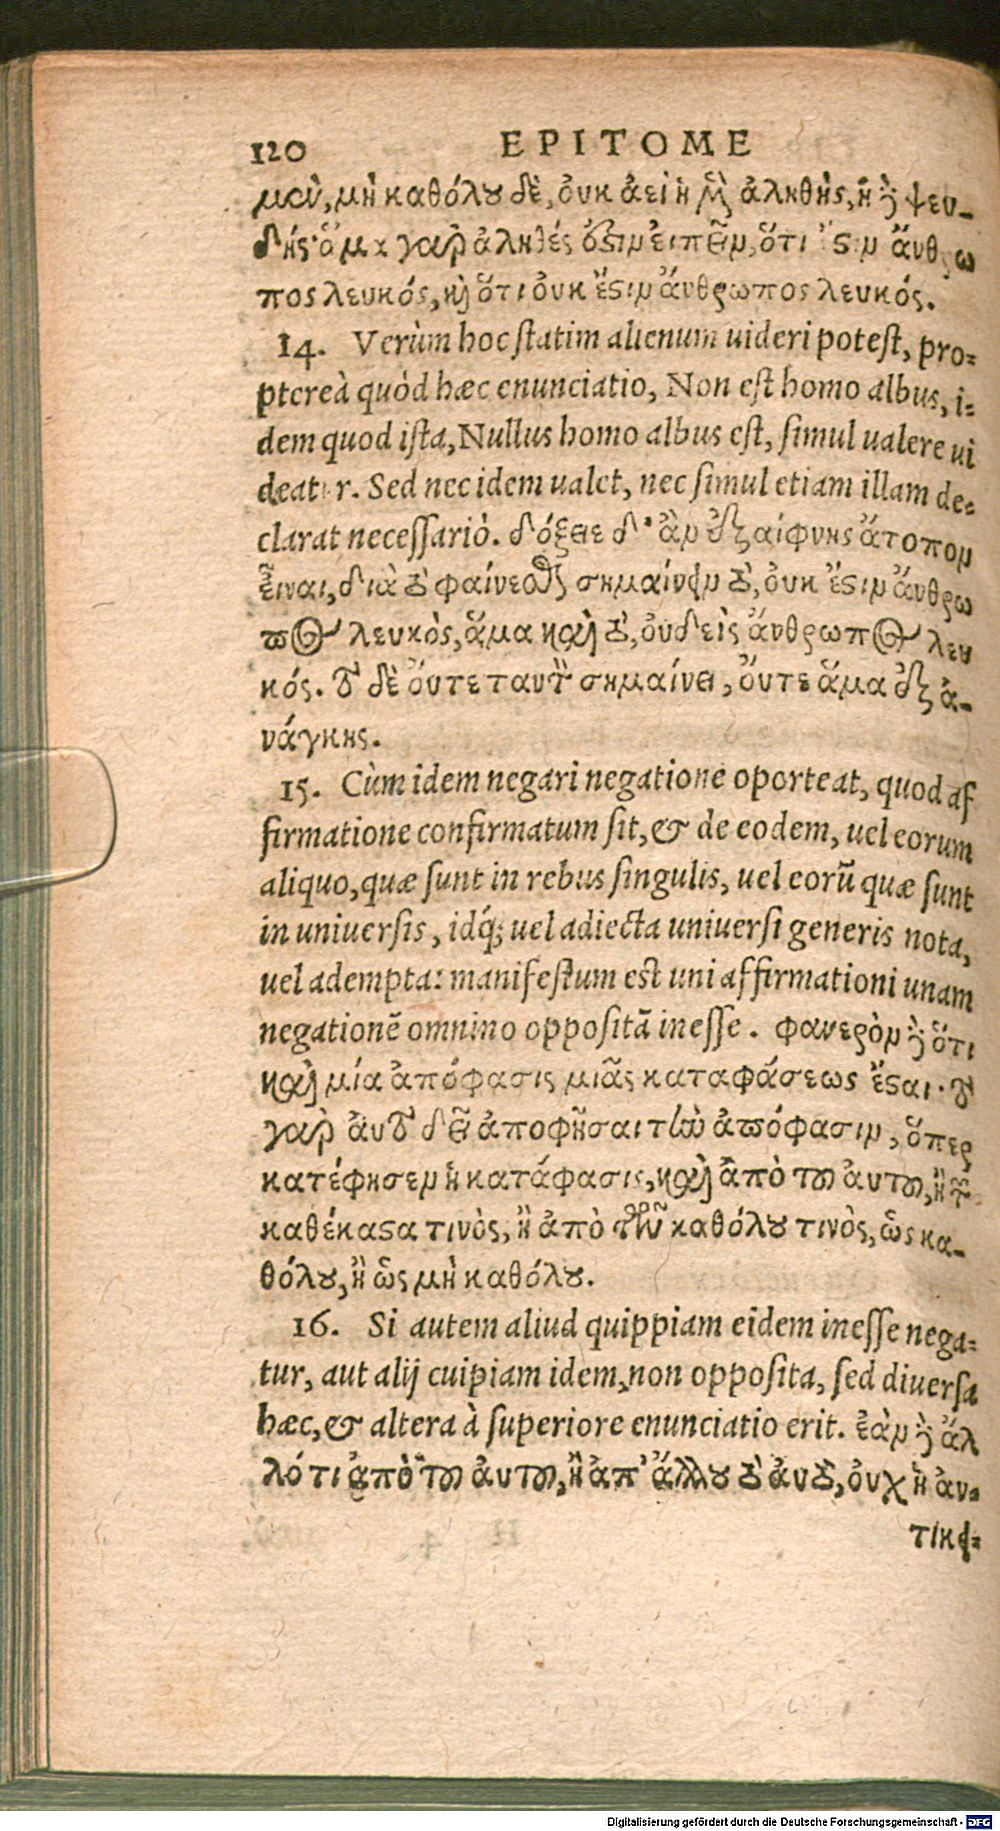 120 EPITOME
μὲν, μὴ καθόλου δὲ, οὐκ ἀεὶ ἡ μὲν ἀληθὴς, ἡ δὲ ψευ-
δής· ἅμα γὰρ ἀληθές ἐστιν εἰπεῖν, ὅτι ἔστιν ἄνθρω
πος λευκός, καὶ ὅτι οὐκ ἔστιν ἄνθρωπος λευκός.
14. Verùm hoc statim alienum uideri potest, pro-
ptereà quòd hæc enunciatio, Non est homo albus, i-
dem quod ista, Nullus homo albus est, simul ualere ui
deatur. Sed nec idem ualet, nec simul etiam illam de-
clarat necessariò. δόξειε δ' ἂν ἐξαίφνης ἄτοπον
εἶναι, διὰ τὸ φαίνεσθαι σημαίνειν τὸ, οὐκ ἔστιν ἄνθρω
πος λευκὸς, ἅμα καὶ τὸ, οὐδεὶς ἄνθρωπος λευ
κός. τὸ δὲ οὔτε ταυτὸν σημαίνει, οὔτε ἅμα ἐξ ἀ-
νάγκης.
15. Cùm idem negari negatione oporteat, quod af
firmatione confirmatum sit, & de eodem, uel eorum
aliquo, quæ sunt in rebus singulis, uel eorũ quæ sunt
in uniuersis, idq́; uel adiecta uniuersi generis nota,
uel adempta: manifestum est uni affirmationi unam
negationẽ omnino oppositã inesse. φανερὸν δὲ ὅτι
καὶ μία ἀπόφασις μιᾶς καταφάσεως ἔσται· τὸ
γὰρ αὐτὸ δεῖ ἀποφῆσαι τὴν ἀπόφασιν, ὅπερ
κατέφησεν ἡ κατάφασις, καὶ ἀπὸ τοῦ αὐτοῦ, ἢ τῶν
καθέκαστα τινὸς, ἢ ἀπὸ τῶν καθόλου τινὸς, ὡς κα-
θόλου, ἢ ὡς μὴ καθόλου.
16. Si autem aliud quippiam eidem inesse nega-
tur, aut alij cuipiam idem, non opposita, sed diuersa
hæc, & altera à superiore enunciatio erit. ἐὰν δὲ ἄλ
λό τι ἀπὸ τοῦ αὐτοῦ, ἢ ἀπ' ἄλλου τὸ αὐτὸ, οὐχ ἡ ἀν-
τικει-
Digitalisierung gefördert durch die Deutsche Forschungsgemeinschaft - DFG